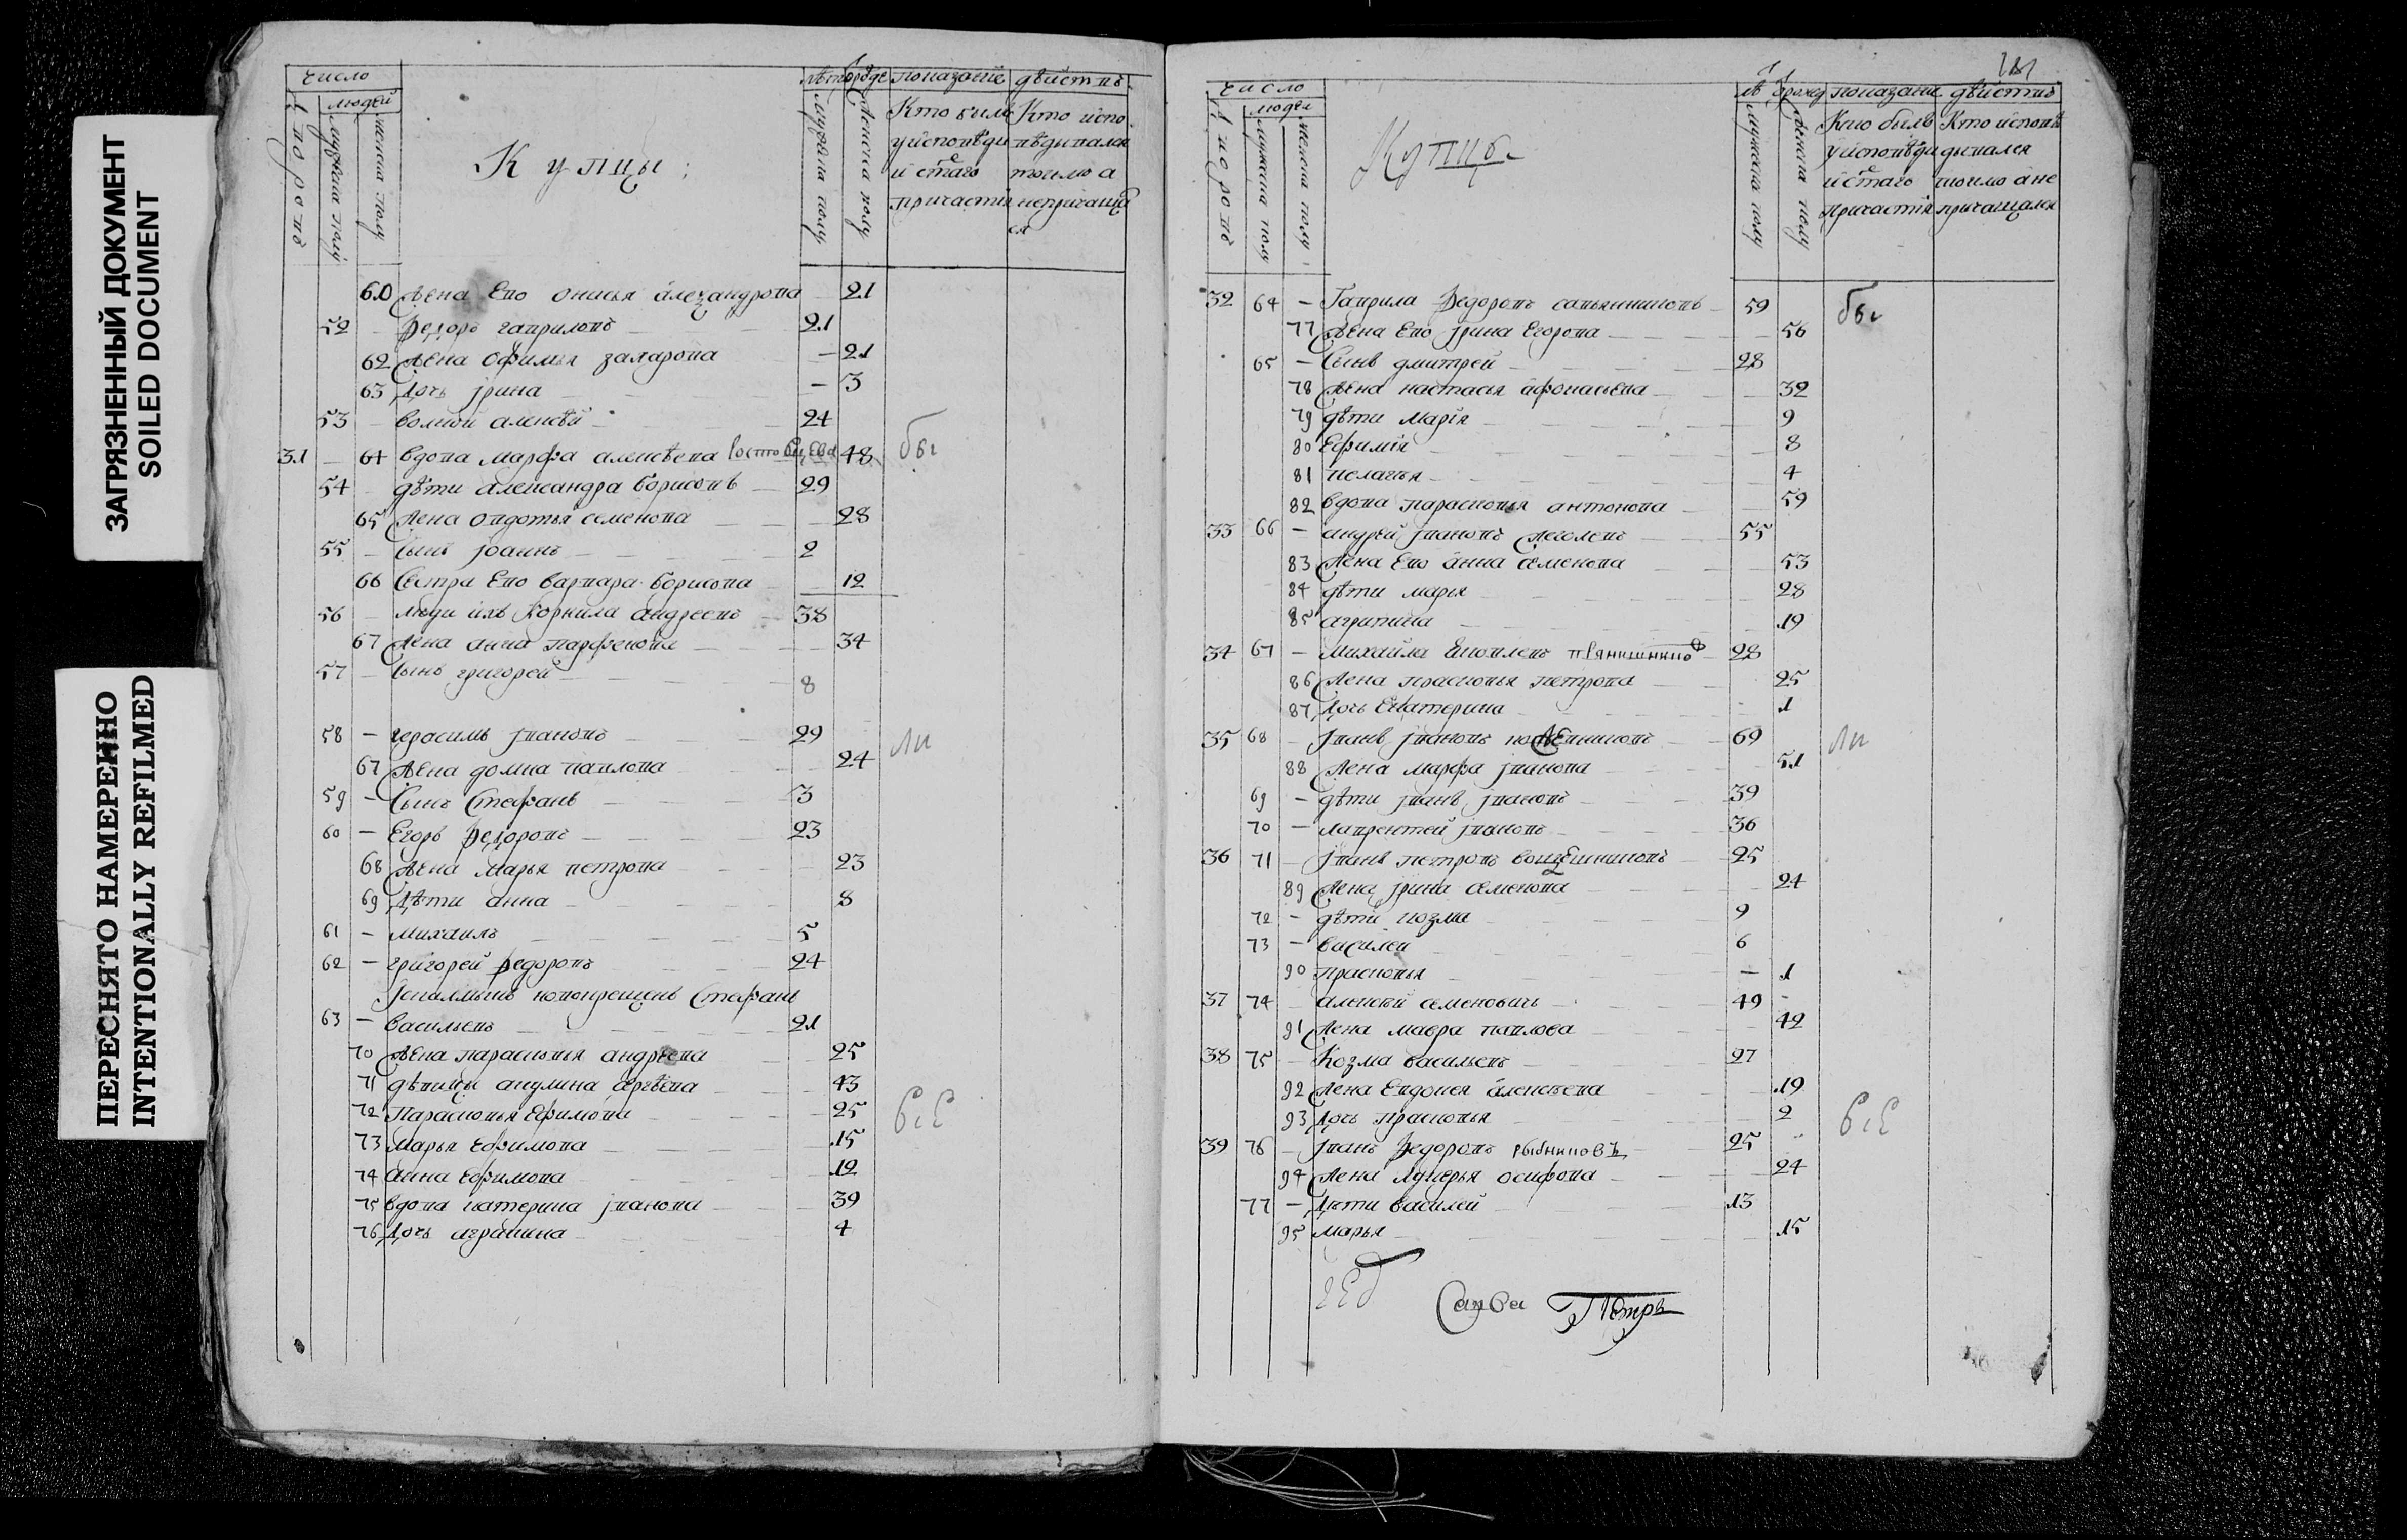 ЗАГРЯЗНЕННЫЙ ДОКУМЕНТ
SOILED DOCUMENT
ПЕРЕСНЯТО НАМЕРЕННО
INTENTIONALLY REFILMED
число
людей
мужеска полу
женска полу
Купцы:
показание дѣйствъ
мужеска полу
женска полу
Кто былъ у исповѣди и стаго причастия
Кто испо вѣдывался токмо а непричаща ся
60 Жена Ево Онисья александрова 21
52 Федоръ гавриловъ 21
62 Жена Офимья захарова 21
63 дочь ирина 3
53 алексѣй 24
31 64 вдова марфа алексѣева 48
54 дѣти александра борисовъ 29
65 Жена овдотья семенова 28
55 сынъ иоаннъ 2
66 Сестра Ево варвара борисова 12
56 люди ихъ корнила андреевъ 38
67 Жена анна парфенова 34
57 сынъ григорей 8
58 герасимъ ивановъ 29
67 Жена домна павлова 24
59 Сынъ Стефанъ 3
60 Егоръ Федоровъ 23
68 Жена марья петрова 23
69 Дѣти анна 8
61 михаилъ 5
62 григорей федоровъ 24
Стефанъ
63 васильевъ 21
70 Жена парасковья андрѣева 25
71 дѣвицы акулина 43
72 Парасковья Ефимова 25
73 Марья ефимова 15
74 Анна ефимова 12
75 вдова катерина иванова 39
76 дочь аграпина 4
число
людей
мужеска полу
женска полу
Купцы
показание дѣйствъ
мужеска полу
женска полу
Кто былъ у исповѣди и стаго причастия
Кто исповѣ дывался токмо ане причащался
32 64 Гаврила Федоровъ 59
77 Жена Ево ирина Егорова 56
65 Сынъ дмитрей 28
78 Жена настасья афонасьева 32
79 дѣти Мария 9
80 Ефимия 8
81 пелагья 4
82 вдова парасковья антонова 59
33 66 андрей ивановъ 55
83 Жена Ево анна Семенова 53
84 дѣти марья 28
85 агрипина 19
34 67 Михаила прянишниковъ 28
86 Жена прасковья петрова 25
87 дочь Екатерина 1
35 68 иванъ ивановъ кожевниковъ 69
88 Жена марфа иванова 51
69 дѣти иванъ ивановъ 39
70 лаврентей ивановъ 36
36 71 иванъ петровъ 25
89 Жена ирина семенова 24
72 дѣти козма 9
73 василей 6
90 прасковья 1
37 74 алексѣй семеновичь 49
91 Жена мавра павлова 42
38 75 Козма васильевъ 27
92 Жена Евдокея алексѣева 19
93 дочь прасковья 2
39 76 иванъ федоровъ рыбниковъ 25
94 Жена лукерья осипова 24
77 Дѣти василей 13
95 марья 15
Петръ